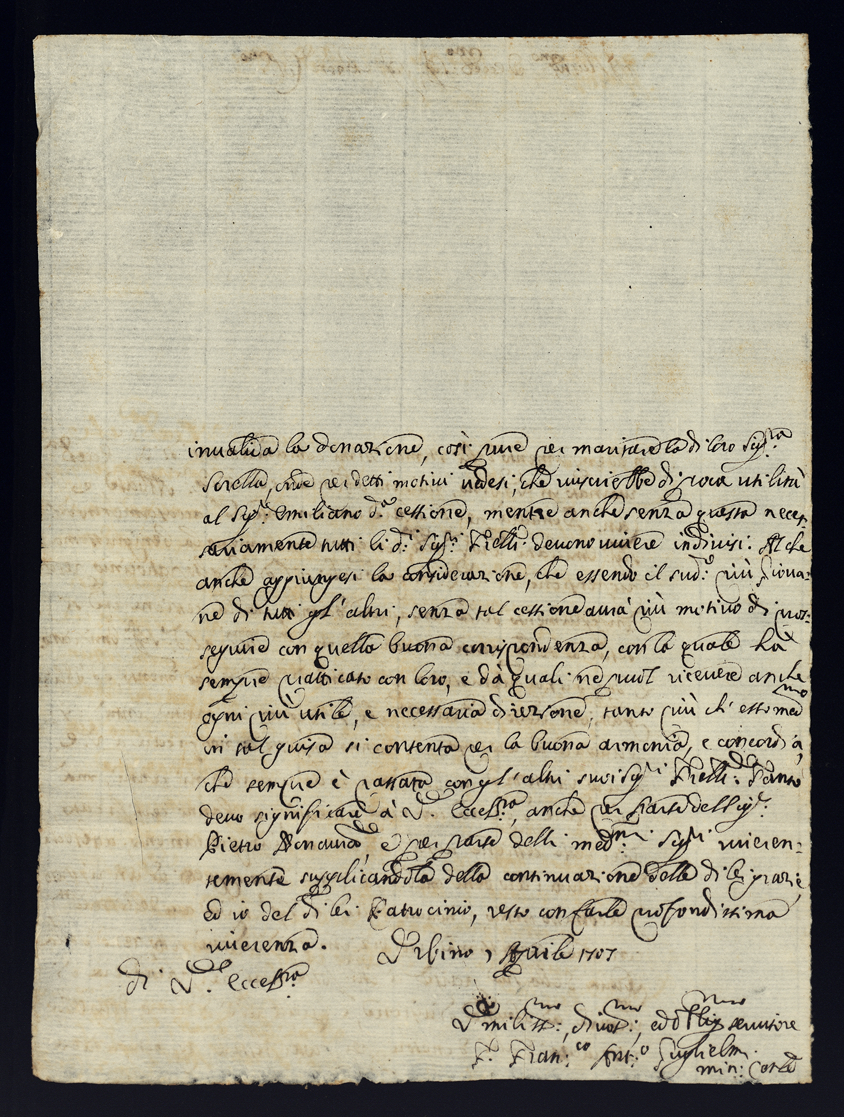 invalida la donazione, così pure per maritare la di loro Sig.ra
Sorella, che per detti motivi vedesi, che riuscirebbe di poca utilità
al Sig.r Emiliano d.a cessione, mentre anche senza questa neces-
sariamente tutti li d.i Sig.ri Frelli devono vivere indivisi. Al che
anche aggiungesi la considerazione, che essendo il sud.o più giova-
ne di tutti gl'altri, senza tal cessione avrà più motivo di pro-
seguire con quella buona corrispondenza, con la quale hà
sempre praticato con loro, e dà quali ne puol ricevere anche
ogni più utile, e necessaria direzione, tanto più ch'esso med.mo
in tal guisa si contenta per la buona armonia, e concordia,
che sempre è passata con gl'altri suoi Sig.ri Frelli. Tanto
devo significare à V.ra Eccell.za, anche per parte del Sig.r
Pietro Bonaventura e per parte delli med.mi Sig.ri riveren-
temente supplicandola della continuazione delle di lei grazie,
ed io del di lei Patrocinio, resto con farle profondissima
riverenza. Urbino 1 Aprile 1707
di V.ra Eccell.za
Umiliss.mo, divot.mo, ed obblig.mo servitore
F. Fran.co Ant.o Guglielmi
min: Con.le